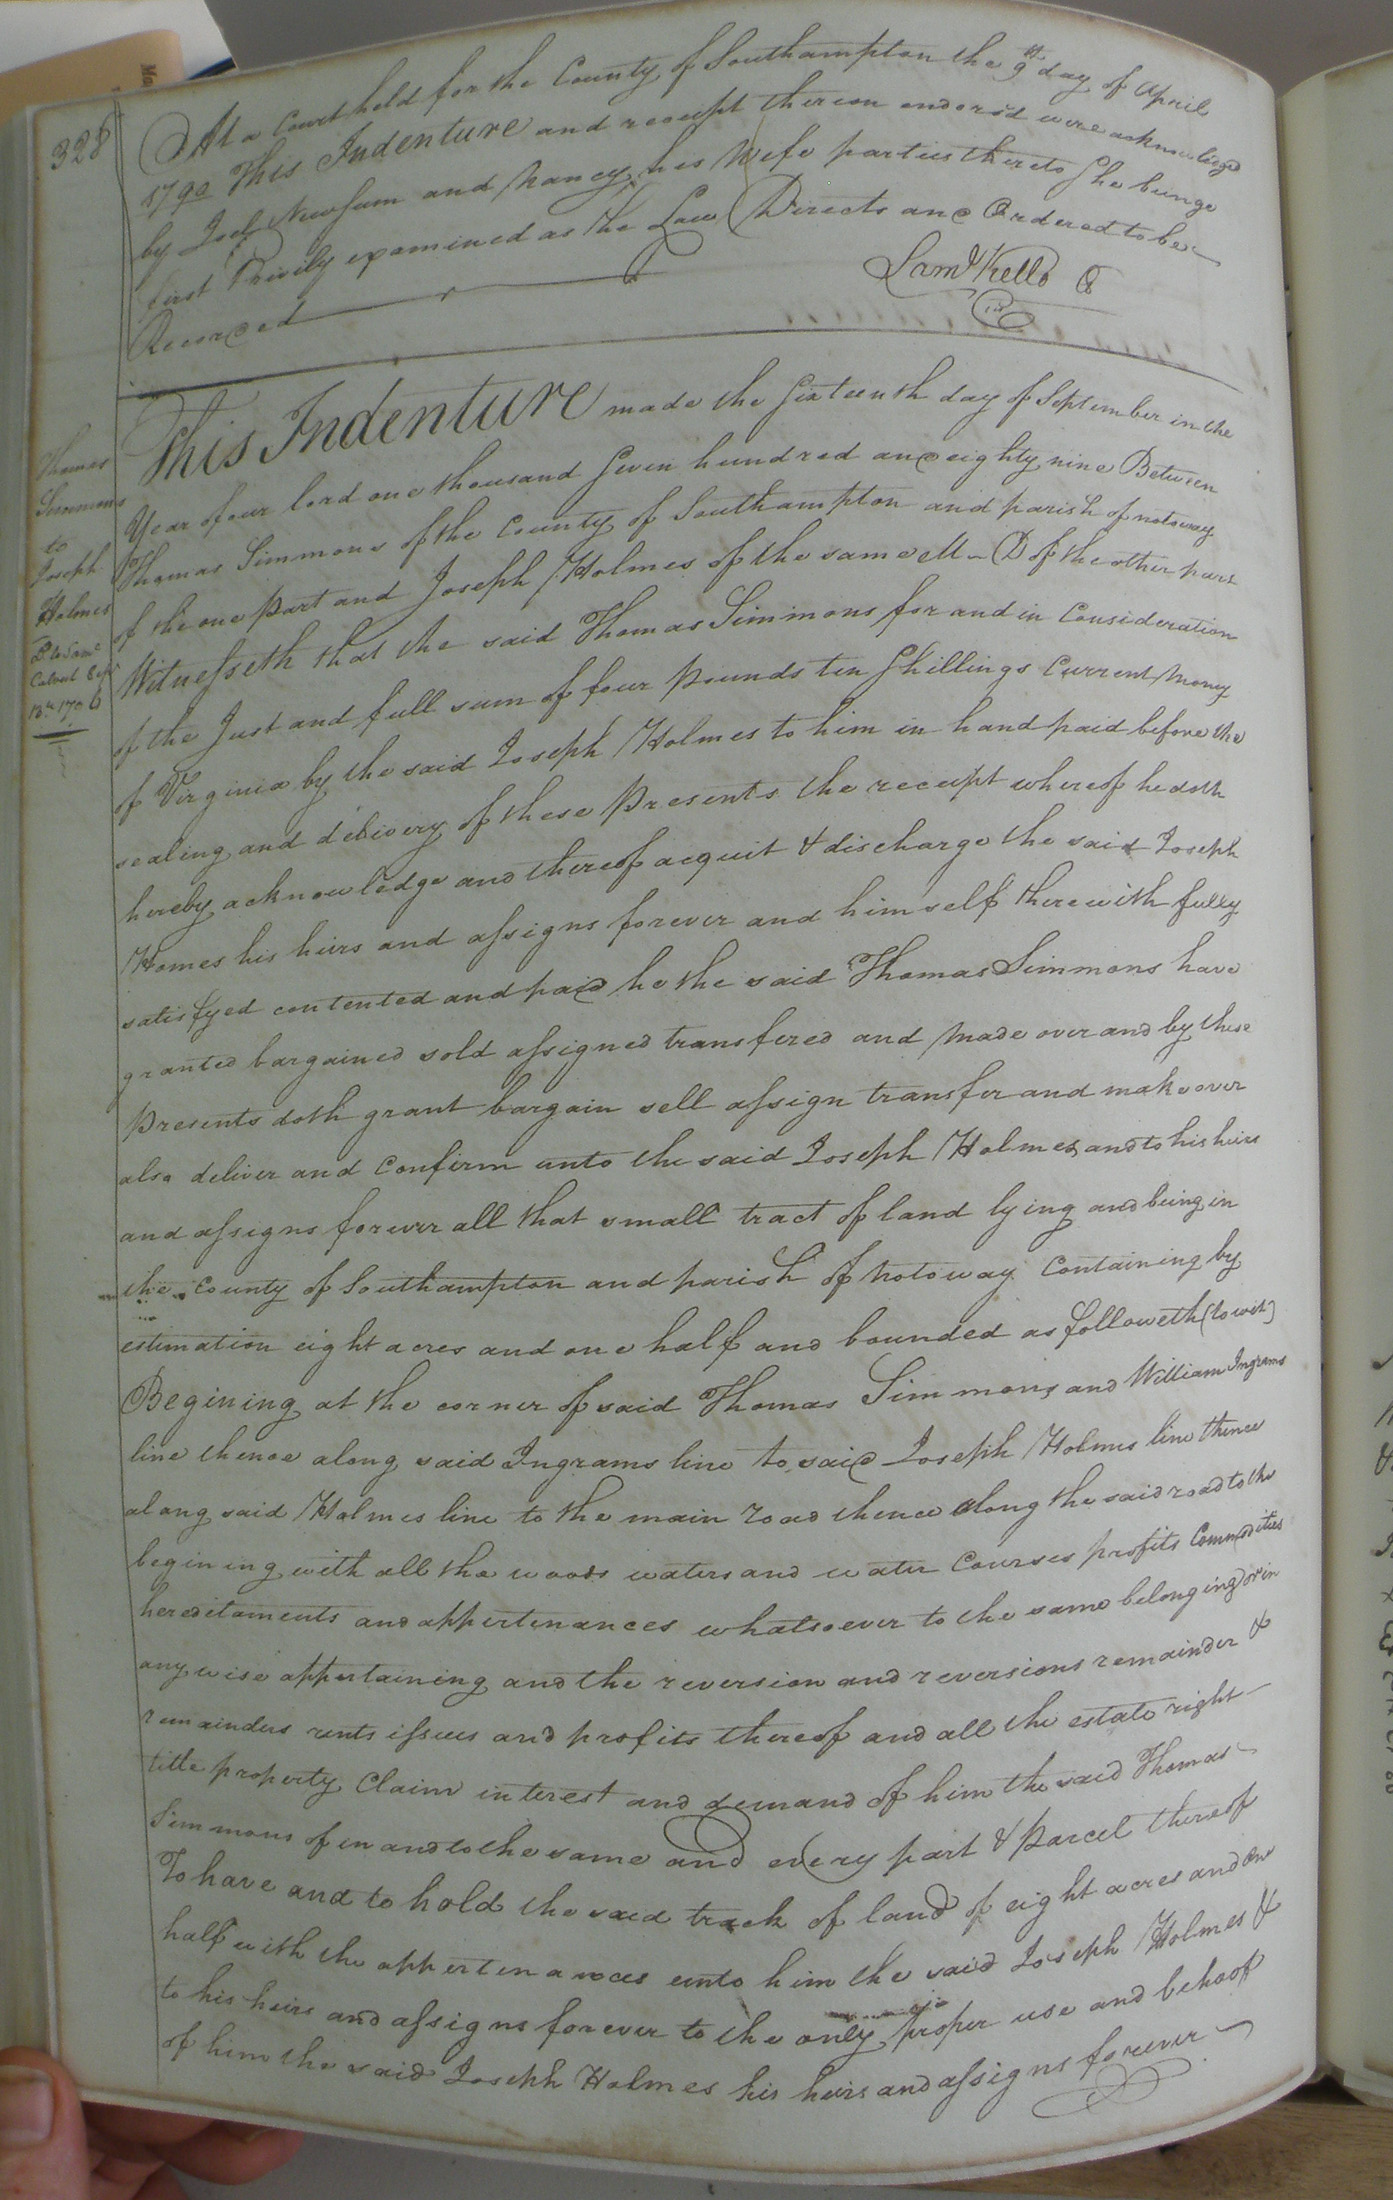 328
At a Court held for the County of Southampton the 9th day of April
1790 This Indenture and receipt thereon endorsd were acknowledged
by Joel Newsum and Nancy his Wife parties thereto She being
first Privily examined as the Law Directs and Ordered to be
Recorded
Saml Kello
Thomas
Simmons
to
Joseph
Holmes
This Indenture made the Sixteenth day of September in the
Year of our lord one thousand Seven hundred and eighty nine Between
Thomas Simmons of the County of Southampton and parish of notoway
of the one Part and Joseph Holmes of the same of the other part
Witnesseth that the said Thomas Simmons for and in Consideration
of the Just and full sum of four Pounds ten Shillings Current Money
of Virginia by the said Joseph Holmes to him in hand paid before the
sealing and delivery of these Presents the receipt whereof he doth
hereby acknowledge and thereof acquit & discharge the said Joseph
Homes his heirs and assigns forever and himself therewith fully
satisfyed contented and paid he the said Thomas Simmons have
granted bargained sold assigned transfered and made over and by these
Presents doth grant bargain sell assign transfer and make over
also deliver and Confirm unto the said Joseph Holmes and to his heirs
and assigns forever all that small tract of land lying and being in
the County of Southampton and parish of Notoway Containing by
estimation eight acres and one half and bounded as followeth (to wit)
Begining at the corner of said Thomas Simmons and William Ingrams
line thence along said Ingrams line to said Joseph Holmes line thence
along said Holmes line to the main road thence along the said road to the
begining with all the woods waters and water Courses profits Commodities
hereditaments and appertenances whatsoever to the same belonging or in
any wise appertaining and the reversion and reversions remainder &
remainders rents issues and profits thereof and all the estate right
title property Claim interest and demand of him the said Thomas
Simmons of in and to the same and every part & Parcel thereof
To have and to hold the said track of land of eight acres and one
half with the appertenances unto him the said Joseph Holmes &
to his heirs and assigns forever to the only proper use and behoof
of him the said Joseph Holmes his heirs and assigns forever